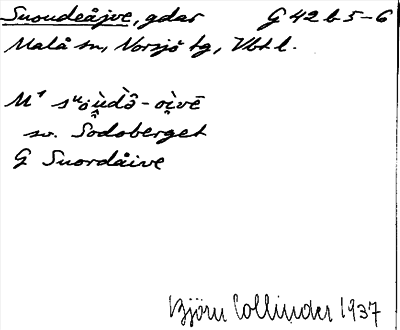 Suoudeåjve, gdar G 42 b 5-6
Malå sn, Norsjö tg, Vbt l.
sv. Sodoberget
G Suordåive
Björn Collinder 1937